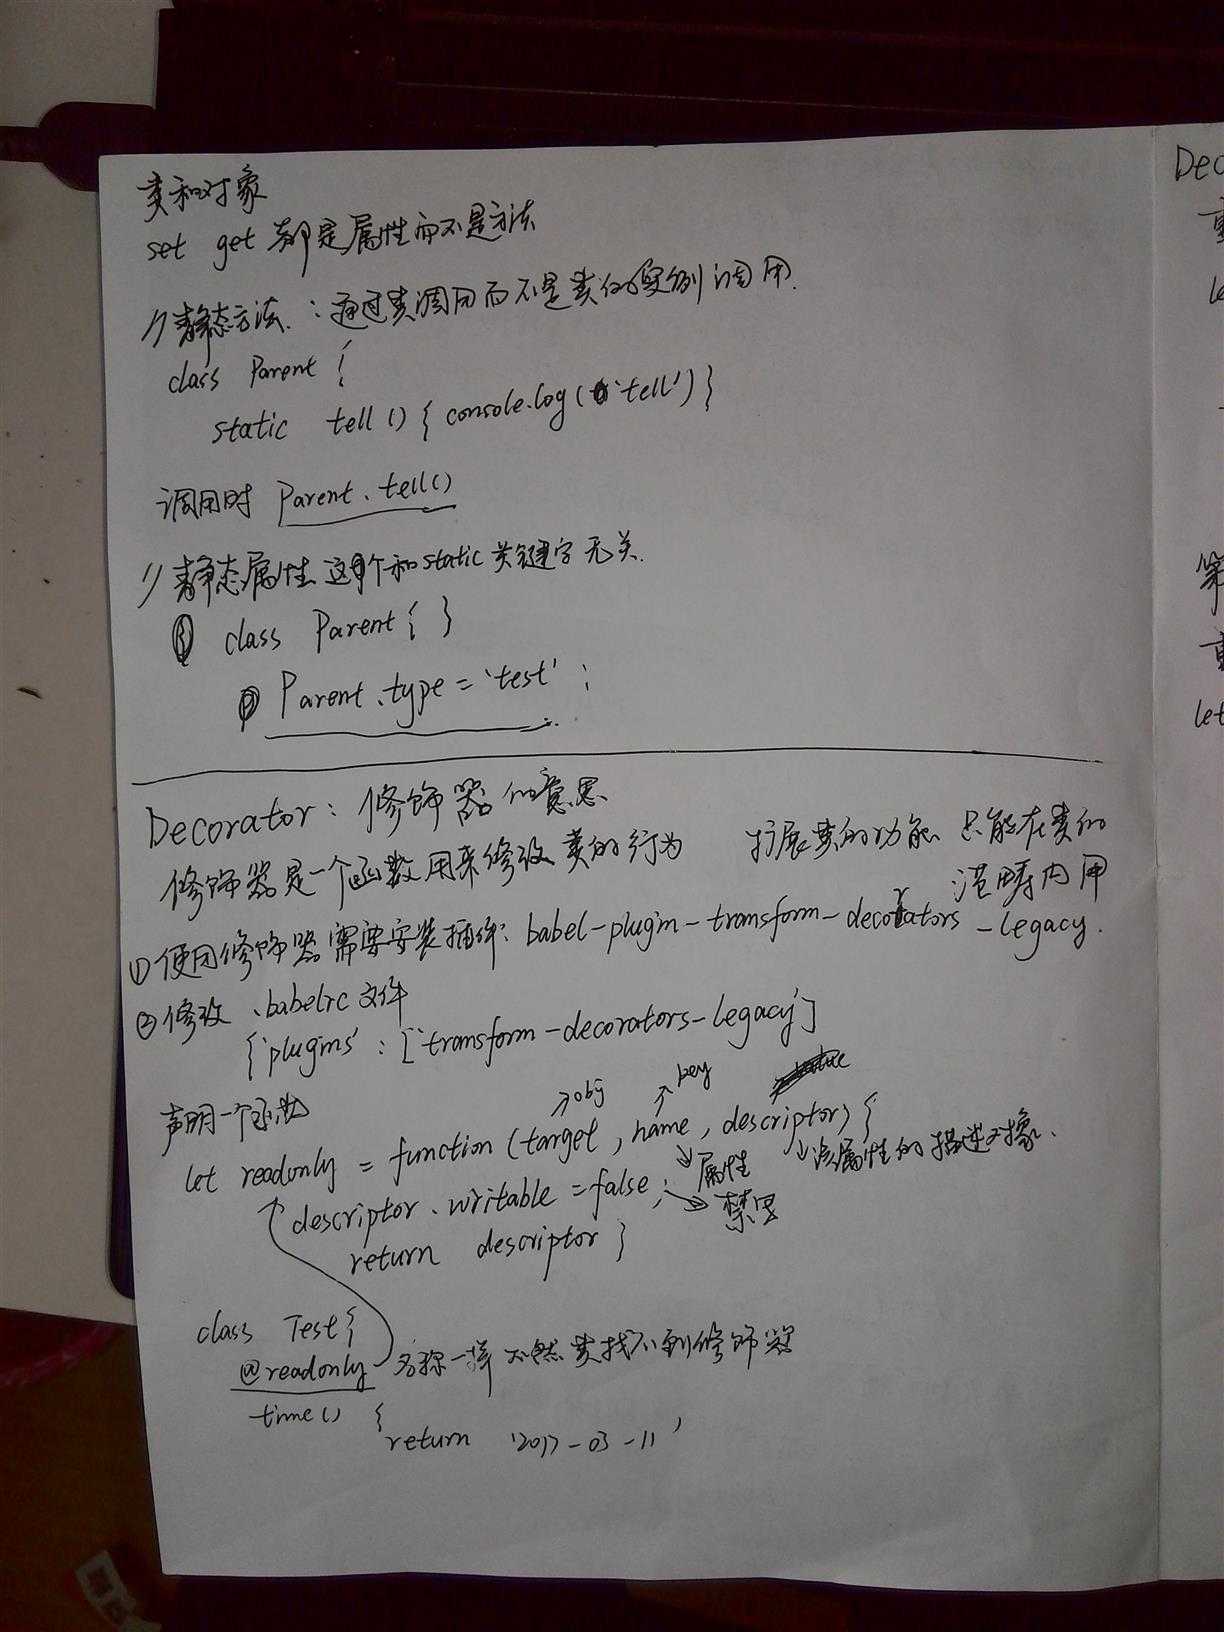 类和对象
set get 都是属性而不是方法
// 静态方法：通过类调用而不是类的实例调用.
class Parent {
static tell() { console.log('tell') }
调用时 Parent.tell()
// 静态属性 这个和static关键字无关.
① class Parent { }
② Parent.type = 'test';
Decorator: 修饰器的意思
修饰器是一个函数用来修改类的行为 扩展类的功能 只能在类的
范畴内用
①使用修饰器需要安装插件: babel-plugin-transform-decorators-legacy.
②修改 .babelrc 文件
{'plugins' : ['transform-decorators-legacy']
→obj →key
声明一个函数
let readonly = function (target, name, descriptor) {
→属性 →该属性的描述对象.
descriptor.writable = false; →禁写
return descriptor }
class Test {
@readonly 名称一样 不然类找不到修饰器
time() {
return '2017-03-11'
Dec
重
le
等
重
let